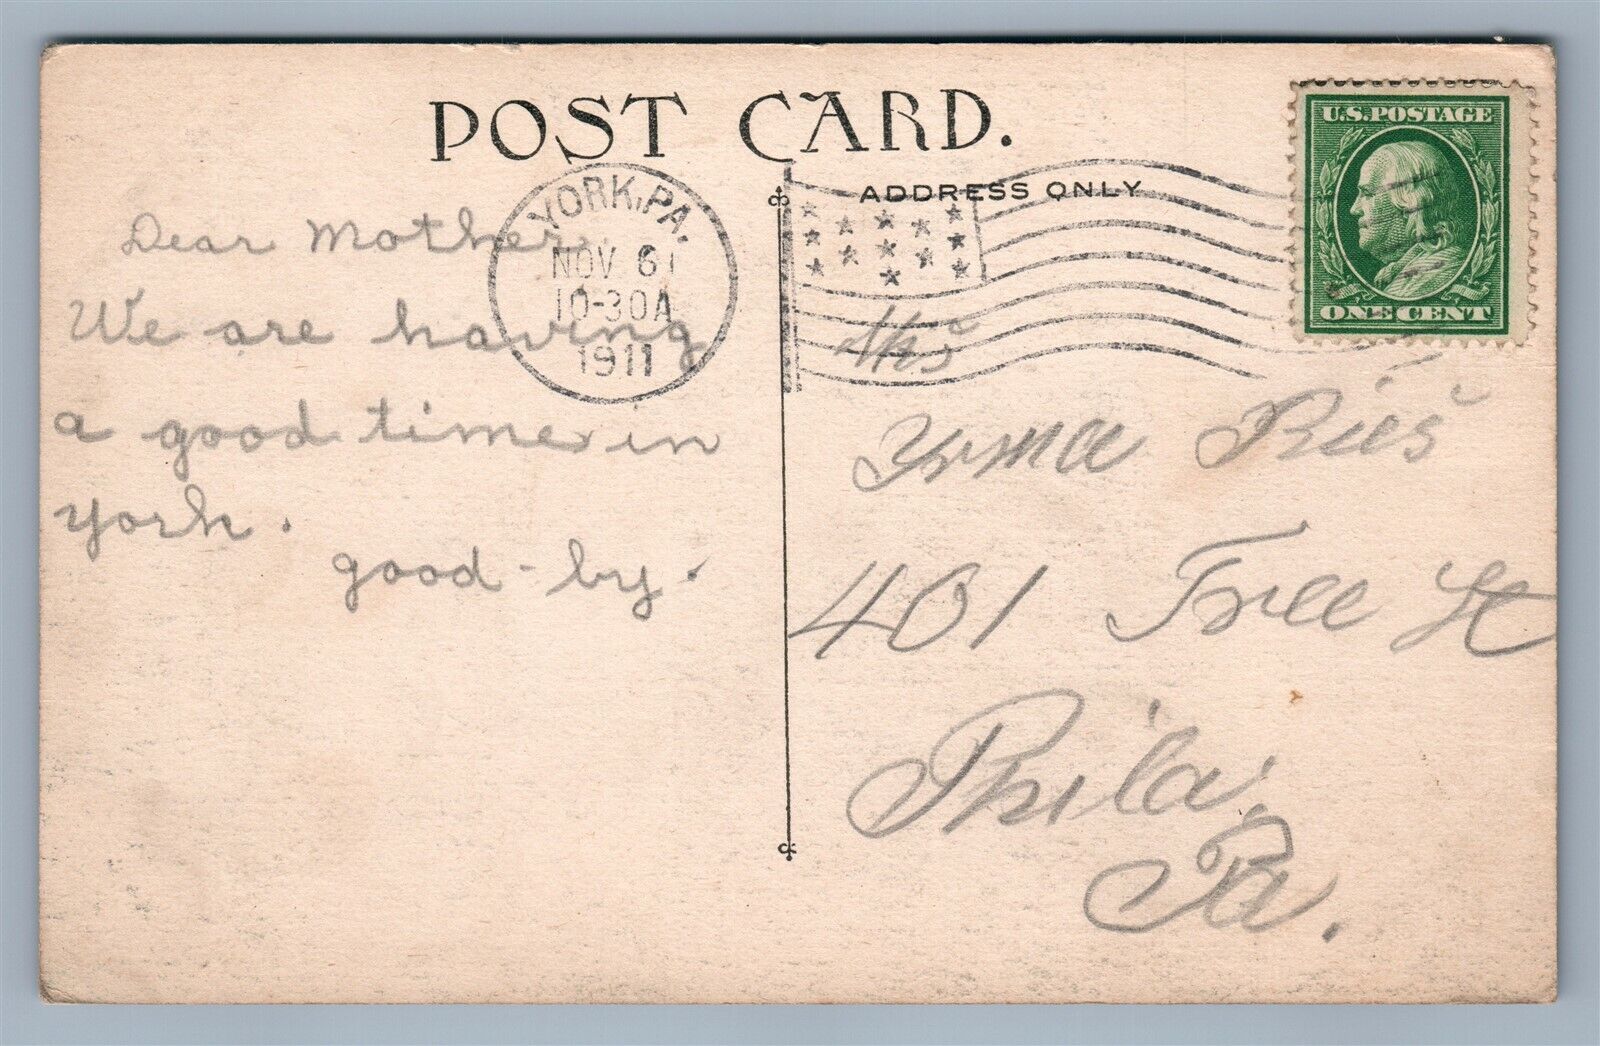 POST CARD.
ADDRESS ONLY
U.S. POSTAGE
ONE CENT
YORK, PA.
NOV 6
10-30A
1911
Dear Mother.
We are having
a good time in
york.
good-by.
Irma Ries
401 Tree St
Phila.
Pa.